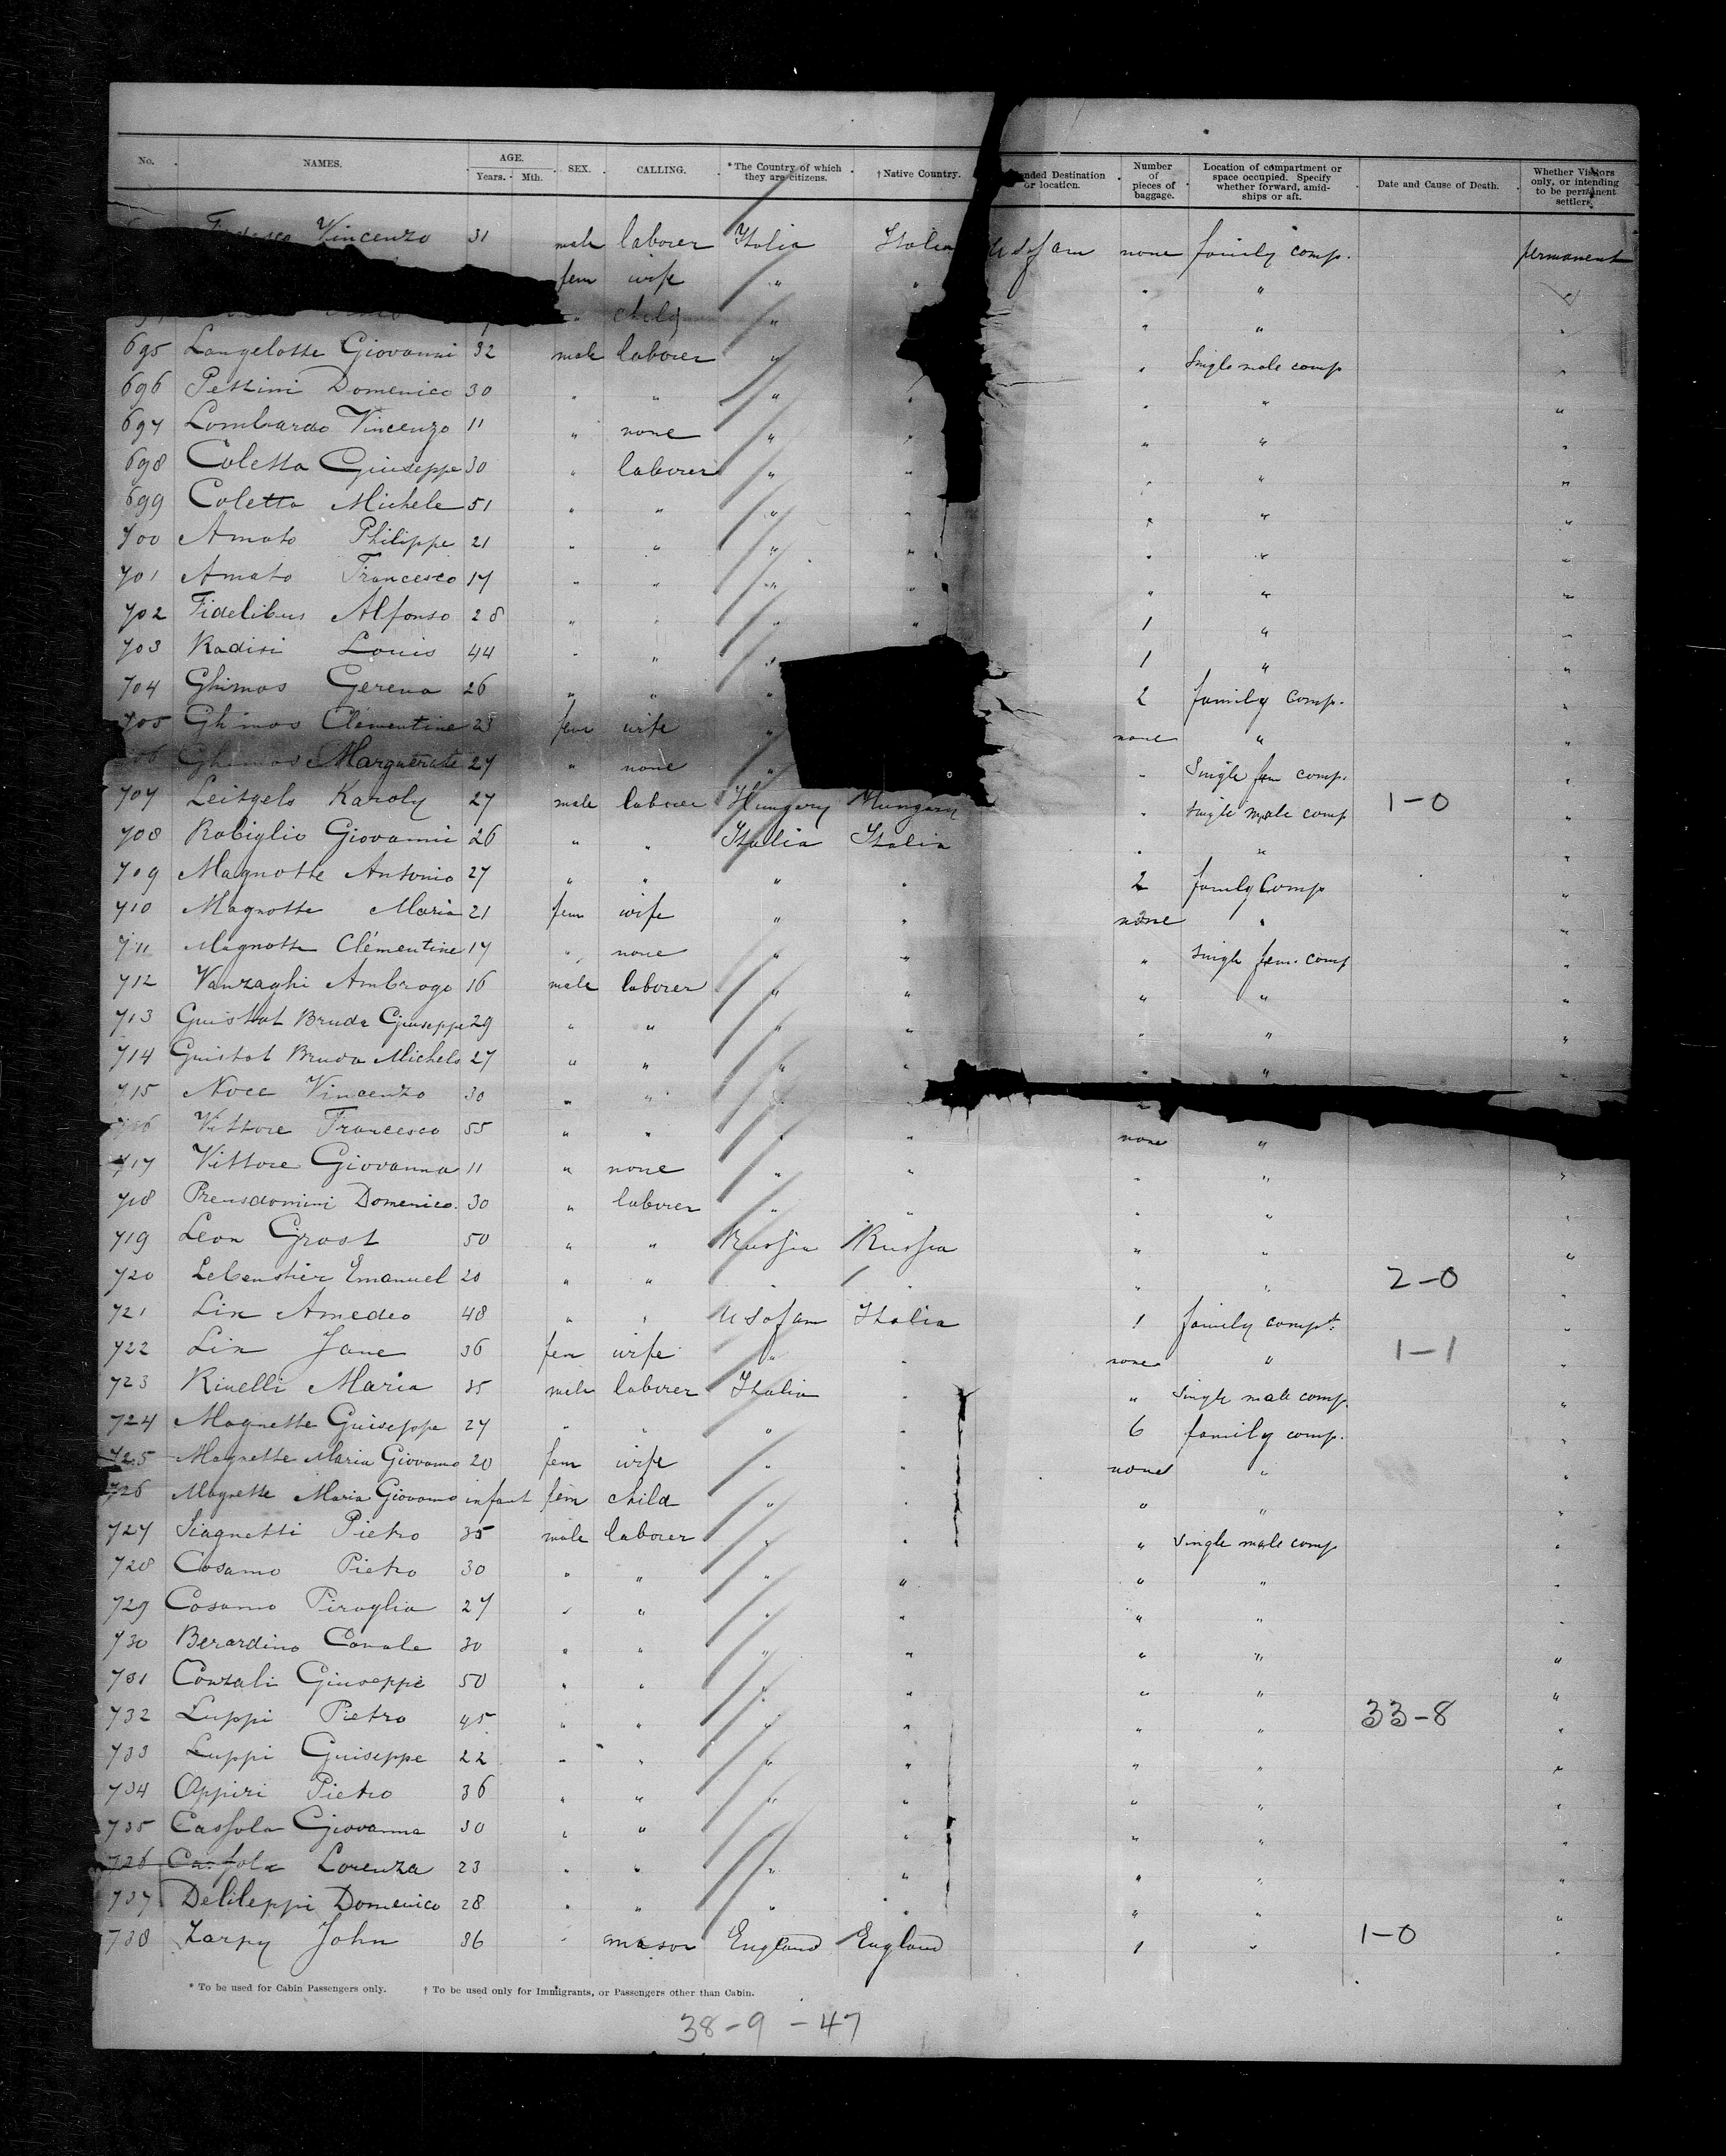 No. NAMES. AGE. Years. Mth. SEX. CALLING. * The Country of which they are citizens. † Native Country. nded Destination or location. Number of pieces of baggage. Location of compartment or space occupied. Specify whether forward, amidships or aft. Date and Cause of Death. Whether Visitors only, or intending to be permanent settlers.
Vincenzo 31 male laborer Italia Italia U S of am none family comp. permanent
fem wife " " " "
" child " " " "
695 Langelotte Giovanni 32 male laborer " " Single male comp "
696 Pettini Domenico 30 " " " " " " "
697 Lombardo Vincenzo 11 " none " " " " "
698 Coletta Giuseppe 30 " laborer " " " " "
699 Coletta Michele 51 " " " " " " "
700 Amato Philippe 21 " " " " " " "
701 Amato Francesco 17 " " " " " " "
702 Fidelibus Alfonso 28 " " " " 1 " "
703 Radisi Louis 44 " " " 1 " "
704 Ghimos Gerena 26 " " " 2 family comp. "
705 Ghimos Clementine 25 fem wife " none " "
706 Ghimos Marguerite 27 " none " " Single fem comp. "
707 Leitgels Karoly 27 male laborer Hungary Hungary " Single male comp 1-0 "
708 Robiglio Giovanni 26 " " Italia Italia " " "
709 Magnotte Antonio 27 " " " " 2 family Comp "
710 Magnotte Maria 21 fem wife " " none " "
711 Magnotte Clémentine 17 " none " " " Single fem. comp "
712 Vanzaghi Ambrogo 16 male laborer " " " " "
713 Guistot Bruda Giuseppe 29 " " " " " " "
714 Guistot Bruda Michele 27 " " " " " " "
715 Noce Vincenzo 30 " " " "
716 Vittore Francesco 55 " " " " none "
717 Vittore Giovanna 11 " none " " " " "
718 Preusdomini Domenico. 30 " laborer " " " " "
719 Leon Grost 50 " " Russia Russia " " "
720 Lebenstier Emanuel 20 " " " " " " 2-0 "
721 Lix Amedeo 48 " " U S of am Italia 1 family compt. "
722 Lix Jane 36 fem wife " " none " 1-1 "
723 Rivelli Maria 35 male laborer Italia " " Single male comp. "
724 Magnette Guiseppe 27 " " " 6 family comp. "
725 Magnette Maria Giovanna 20 fem wife " " none " "
726 Magnette Maria Giovanna infant fem child " " " " "
727 Siagnetti Pietro 35 male laborer " " " Single male comp "
728 Cosamo Pietro 30 " " " " " " "
729 Cosamo Piroglia 27 " " " " " " "
730 Berardino Canale 30 " " " " " " "
731 Conzali Giuseppe 50 " " " " " " "
732 Luppi Pietro 45 " " " " " " 33-8 "
733 Luppi Guiseppe 22 " " " " " " "
734 Oppiri Pietro 36 " " " " " " "
735 Cassola Giovanna 30 " " " " " " "
736 Cassola Lorenza 23 " " " " " " "
737 Delileppi Domenico 28 " " " " " " "
738 Zarpy John 36 " mason England England 1 " 1-0 "
* To be used for Cabin Passengers only. † To be used only for Immigrants, or Passengers other than Cabin.
38-9-47